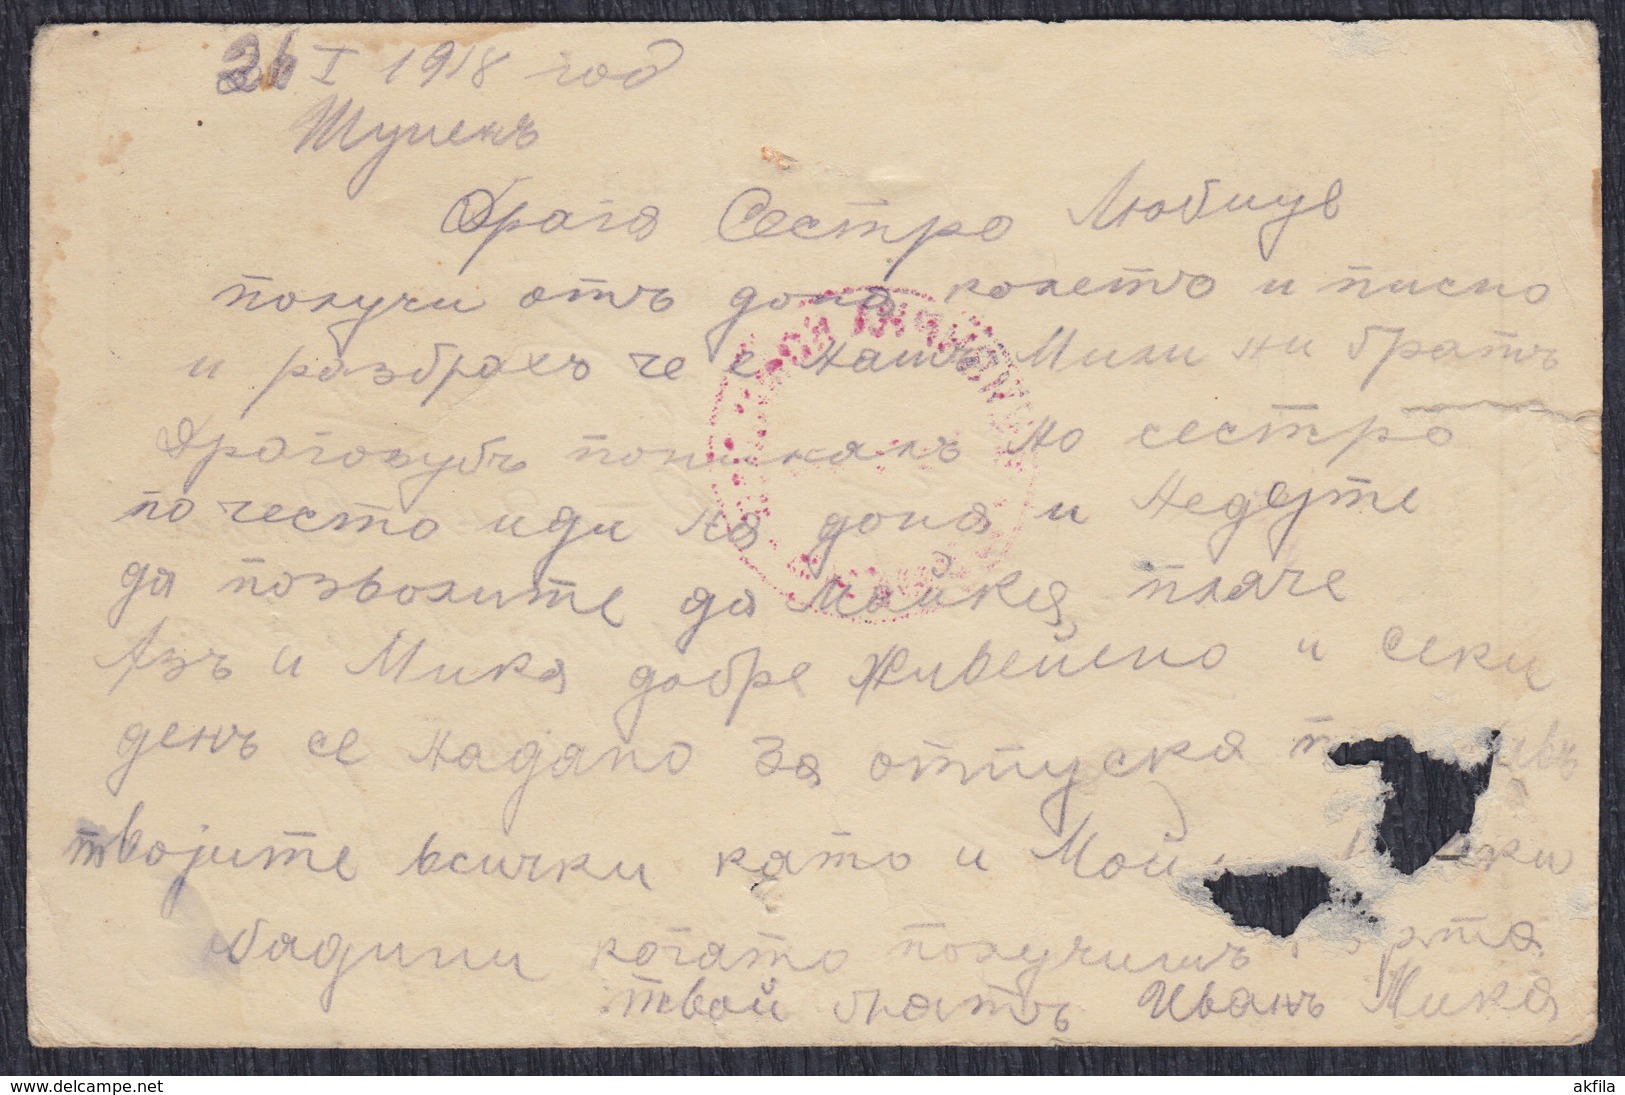 26 I 1918 год
Шуменъ
Драга Сестро Любицу
получи отъ дома колето и писмо
и разбрахъ че е нашъ Мили ни братъ
Драголубъ починалъ но сестро
по често иди на дома и недејте
да позволите да Майка плаче
Азъ и Мика добре живейемо и секи
денъ се надамо за отпуска
твојите всички като и Мой
когато получишъ
твой братъ Иванъ Мика
akfila